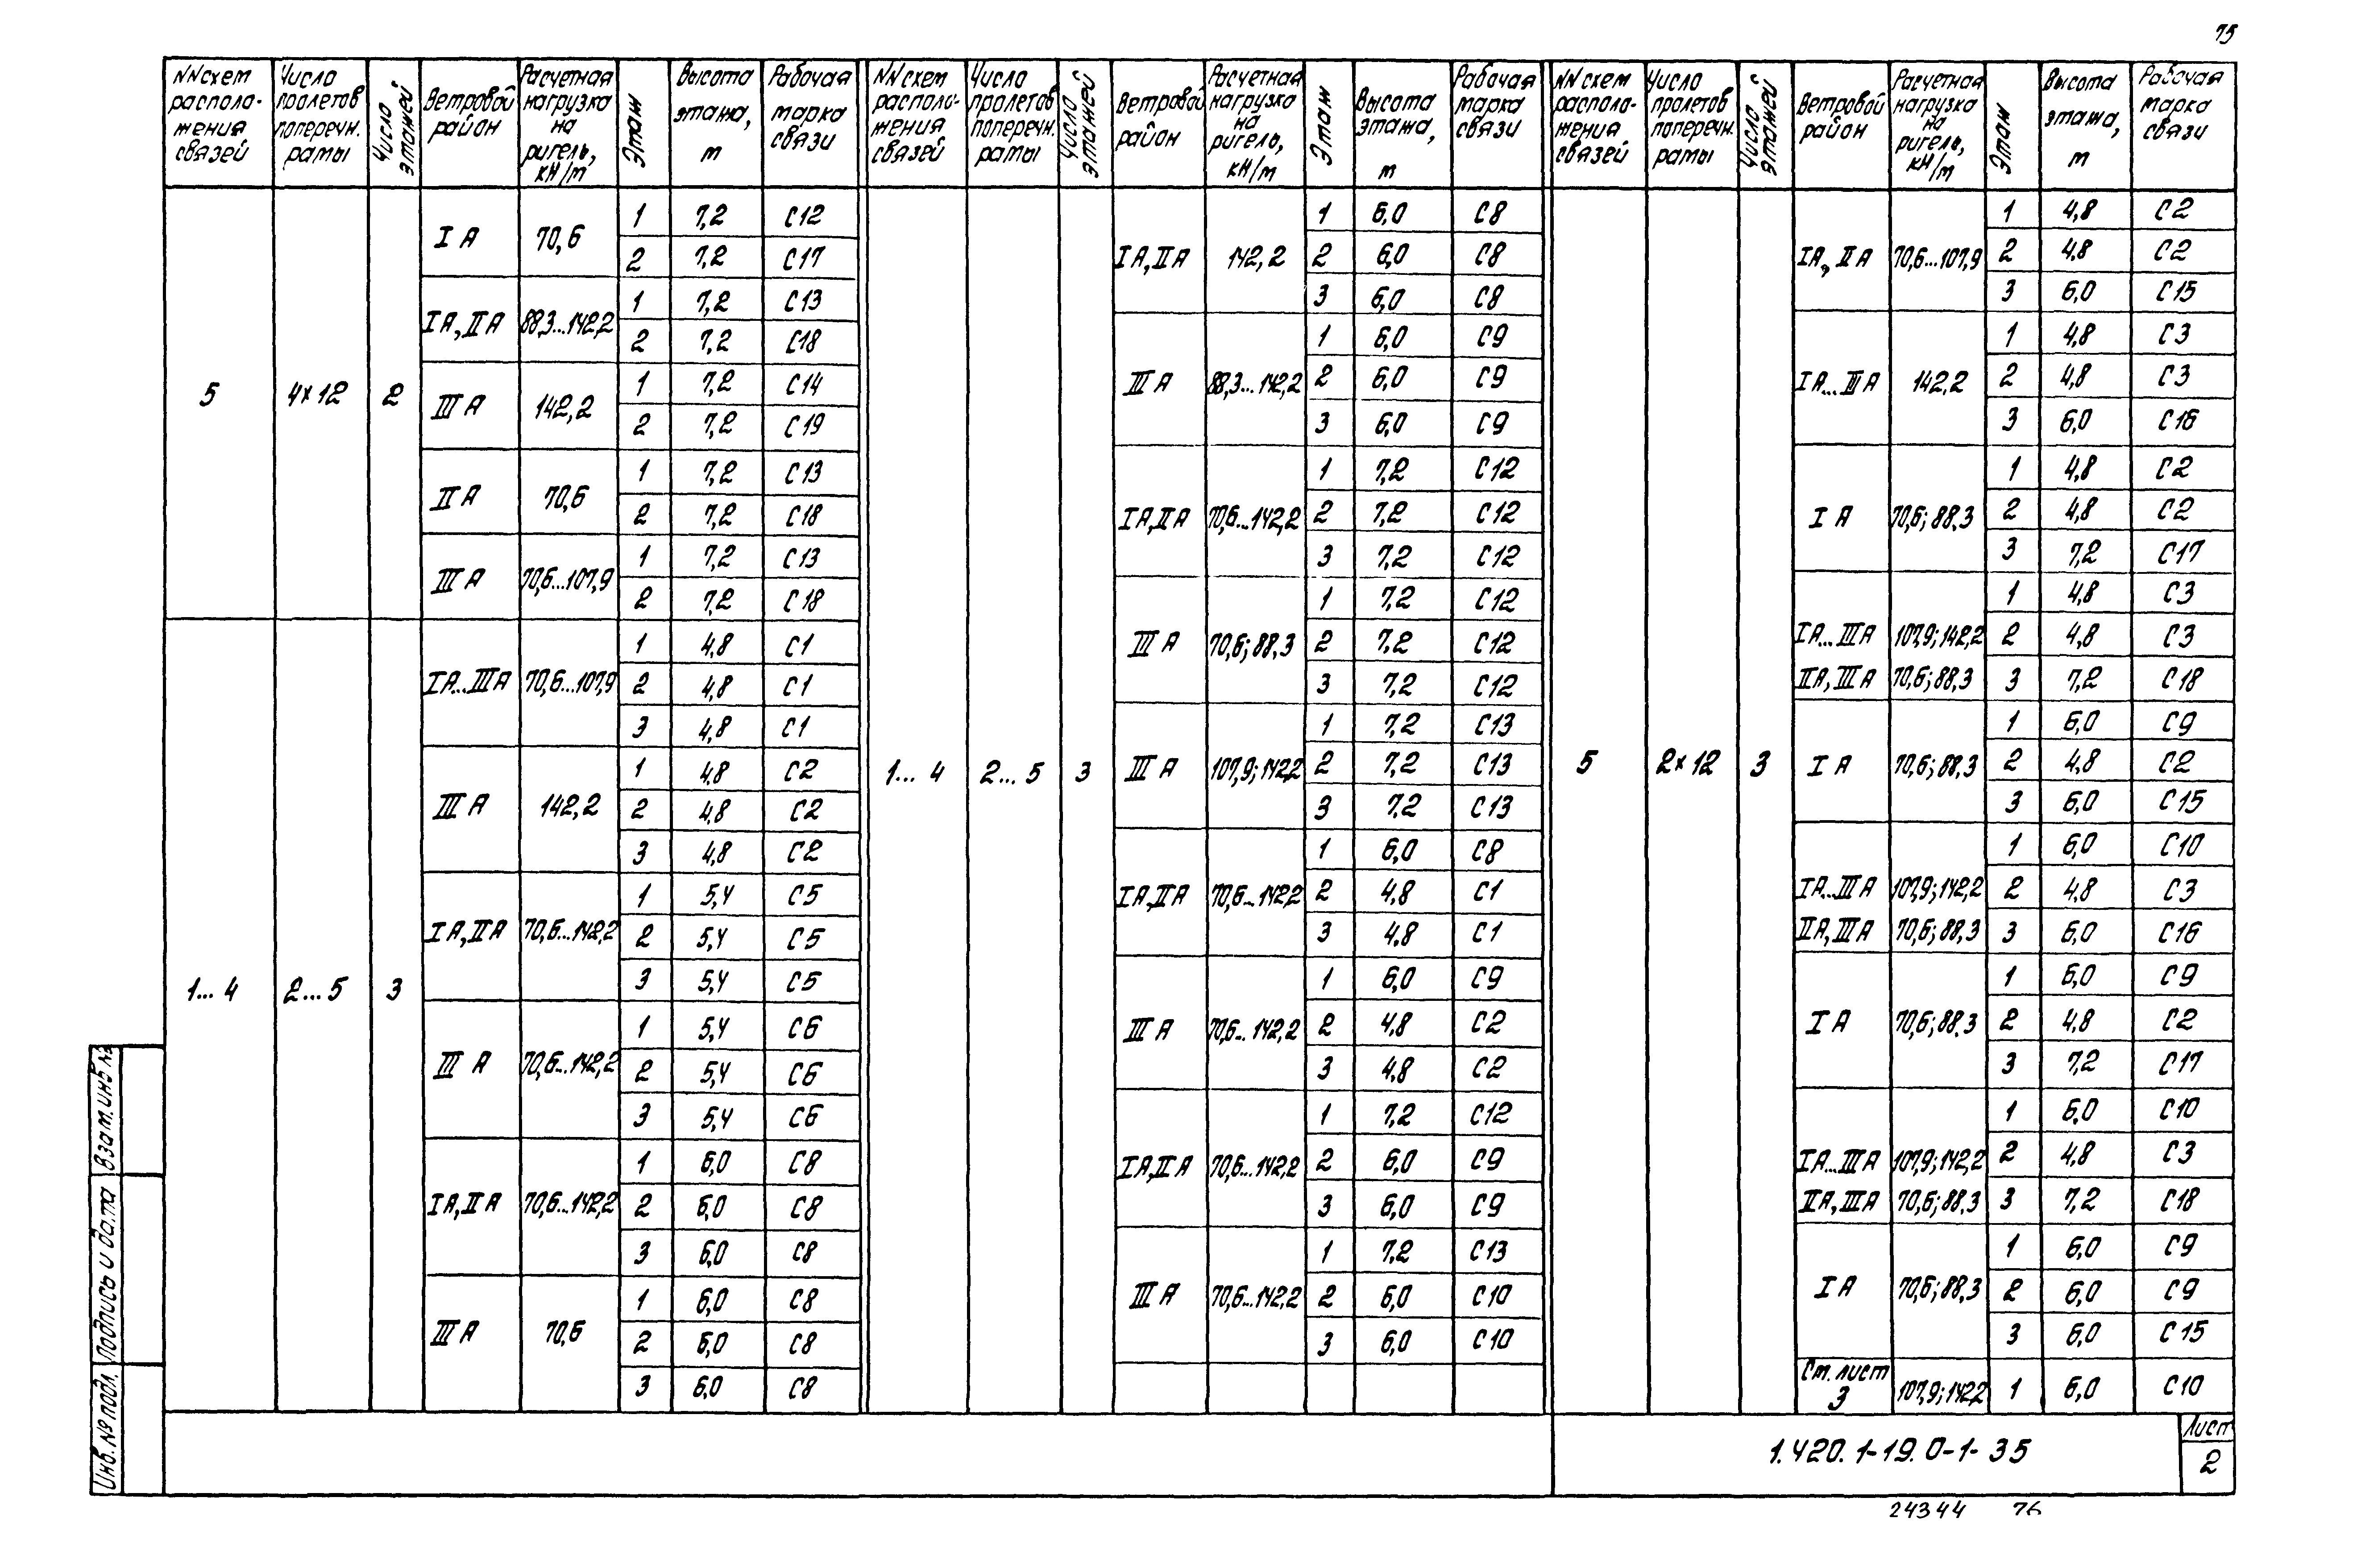 75
NN схем располо-жения связей | Число пролетов поперечн. рамы | Число этажей | Ветровой район | Расчетная нагрузка на ригель, кН/м | Этаж | Высота этажа, м | Рабочая марка связи
5 | 4×12 | 2
IА | 70,6 | 1 | 7,2 | С12
2 | 7,2 | С17
IА, IIА | 88,3...142,2 | 1 | 7,2 | С13
2 | 7,2 | С18
IIIА | 142,2 | 1 | 7,2 | С14
2 | 7,2 | С19
IIА | 70,6 | 1 | 7,2 | С13
2 | 7,2 | С18
IIIА | 70,6...107,9 | 1 | 7,2 | С13
2 | 7,2 | С18
1...4 | 2...5 | 3
IА...IIIА | 70,6...107,9 | 1 | 4,8 | С1
2 | 4,8 | С1
3 | 4,8 | С1
IIIА | 142,2 | 1 | 4,8 | С2
2 | 4,8 | С2
3 | 4,8 | С2
IА, IIА | 70,6...142,2 | 1 | 5,4 | С5
2 | 5,4 | С5
3 | 5,4 | С5
IIIА | 70,6...142,2 | 1 | 5,4 | С6
2 | 5,4 | С6
3 | 5,4 | С6
IА, IIА | 70,6...142,2 | 1 | 6,0 | С8
2 | 6,0 | С8
3 | 6,0 | С8
IIIА | 70,6 | 1 | 6,0 | С8
2 | 6,0 | С8
3 | 6,0 | С8
NN схем располо-жения связей | Число пролетов поперечн. рамы | Число этажей | Ветровой район | Расчетная нагрузка на ригель, кН/м | Этаж | Высота этажа, м | Рабочая марка связи
1...4 | 2...5 | 3
IА, IIА | 142,2 | 1 | 6,0 | С8
2 | 6,0 | С8
3 | 6,0 | С8
IIIА | 88,3...142,2 | 1 | 6,0 | С9
2 | 6,0 | С9
3 | 6,0 | С9
IА, IIА | 70,6...142,2 | 1 | 7,2 | С12
2 | 7,2 | С12
3 | 7,2 | С12
IIIА | 70,6; 88,3 | 1 | 7,2 | С12
2 | 7,2 | С12
3 | 7,2 | С12
IIIА | 107,9; 142,2 | 1 | 7,2 | С13
2 | 7,2 | С13
3 | 7,2 | С13
IА, IIА | 70,6...142,2 | 1 | 6,0 | С8
2 | 4,8 | С1
3 | 4,8 | С1
IIIА | 70,6...142,2 | 1 | 6,0 | С9
2 | 4,8 | С2
3 | 4,8 | С2
IА, IIА | 70,6...142,2 | 1 | 7,2 | С12
2 | 6,0 | С9
3 | 6,0 | С9
IIIА | 70,6...142,2 | 1 | 7,2 | С13
2 | 6,0 | С10
3 | 6,0 | С10
NN схем располо-жения связей | Число пролетов поперечн. рамы | Число этажей | Ветровой район | Расчетная нагрузка на ригель, кН/м | Этаж | Высота этажа, м | Рабочая марка связи
5 | 2×12 | 3
IА, IIА | 70,6...107,9 | 1 | 4,8 | С2
2 | 4,8 | С2
3 | 6,0 | С15
IА...IIIА | 142,2 | 1 | 4,8 | С3
2 | 4,8 | С3
3 | 6,0 | С16
IА | 70,6; 88,3 | 1 | 4,8 | С2
2 | 4,8 | С2
3 | 7,2 | С17
1 | 4,8 | С3
IА...IIIА | 107,9; 142,2 | 2 | 4,8 | С3
IIА, IIIА | 70,6; 88,3 | 3 | 7,2 | С18
IА | 70,6; 88,3 | 1 | 6,0 | С9
2 | 4,8 | С2
3 | 6,0 | С15
1 | 6,0 | С10
IА...IIIА | 107,9; 142,2 | 2 | 4,8 | С3
IIА, IIIА | 70,6; 88,3 | 3 | 6,0 | С16
IА | 70,6; 88,3 | 1 | 6,0 | С9
2 | 4,8 | С2
3 | 7,2 | С17
1 | 6,0 | С10
IА...IIIА | 107,9; 142,2 | 2 | 4,8 | С3
IIА, IIIА | 70,6; 88,3 | 3 | 7,2 | С18
IА | 70,6; 88,3 | 1 | 6,0 | С9
2 | 6,0 | С9
3 | 6,0 | С15
См. лист 3 | 107,9; 142,2 | 1 | 6,0 | С10
Инв. № подл.
Подпись и дата
Взам. инв №
1.420.1-19.0-1-35
Лист
2
24344 76